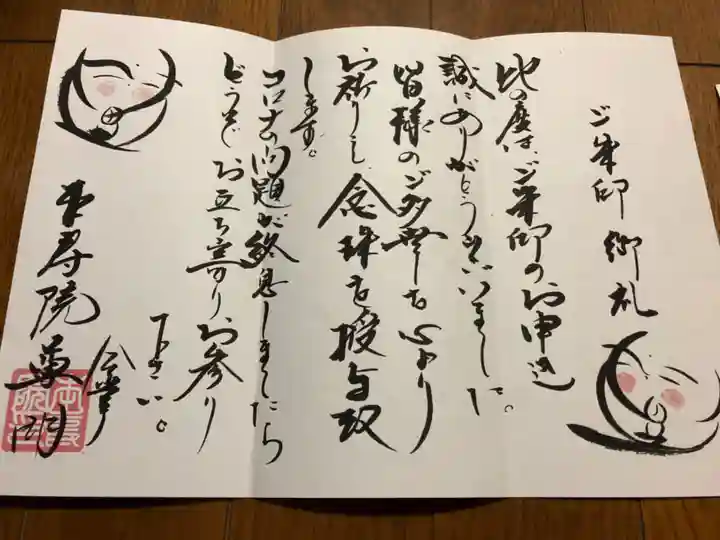 ご朱印御礼
此の度は、ご朱印のお申込
誠にありがとうございました。
皆様のご多幸を心より
お祈りし念珠を授与致
します。
コロナの問題が終息しましたら
どうぞお立ち寄りお参り
下さい。
合掌
寿院